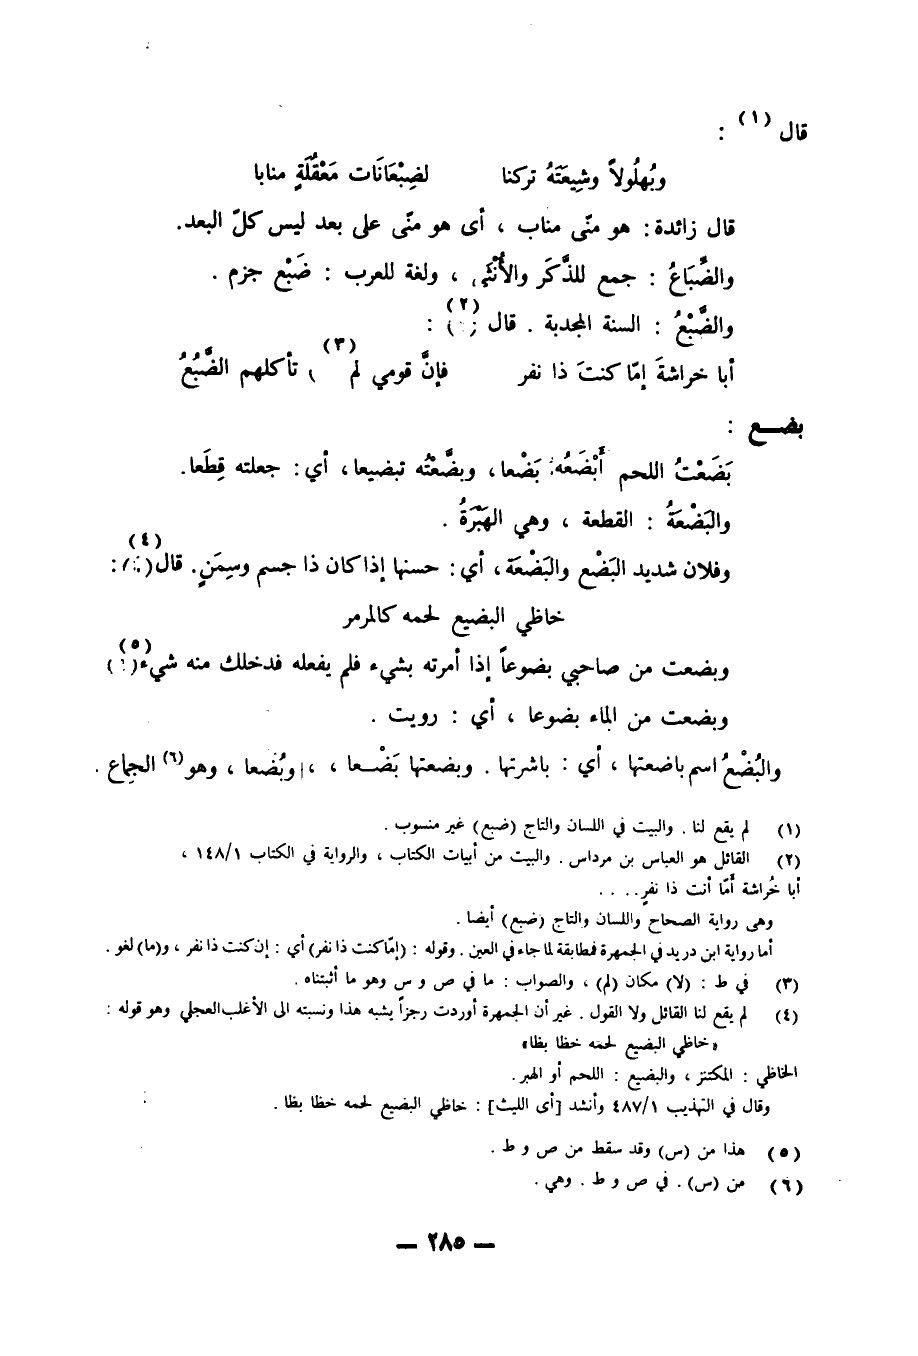 قال (١) :
وبُهلُولاً وشِيعَتَهُ تركنا لضِبْعَانَات مَعْقُلَةٍ منابا
قال زائدة: هو منّي مناب ، أى هو منّي على بعد ليس كلّ البعد.
والضِّبَاعُ : جمع للذَّكَر والأُنْثَى ، ولغة للعرب : ضَبْع جزم .
والضَّبُعُ : السنة المجدبة . قال (٢) :
أبا خراشةَ إمّا كنتَ ذا نفر فإنَّ قومي لم (٣) تأكلهم الضَّبُعُ
بضـع :
بَضَعْتُ اللحم أَبْضَعُه بَضْعا، وبضَّعْتُه تبضيعا، أي: جعلته قِطَعا.
والبَضْعَةُ : القطعة ، وهي الهَبْرَةُ .
وفلان شديد البَضْع والبَضْعَة، أي: حسنها إذا كان ذا جسم وسِمَنٍ. قال (٤) :
خاظي البضيع لحمه كالمرمر
وبضعت من صاحبي بضوعاً إذا أمرته بشيء فلم يفعله فدخلك منه شيء (٥)
وبضعت من الماء بضوعا ، أي : رويت .
والبُضْعُ اسم باضعتها ، أي : باشرتها . وبضعتها بَضْـعا ، وبُضعا ، وهو (٦) الجِماع .
(١) لم يقع لنا . والبيت في اللسان والتاج (ضبع) غير منسوب .
(٢) القائل هو العباس بن مرداس . والبيت من أبيات الكتاب ، والرواية في الكتاب ١٤٨/١ ،
أبا خُراشة أمّا أنت ذا نفرٍ. . . .
وهى رواية الصحاح واللسان والتاج (ضبع) أيضا .
أما رواية ابن دريد في الجمهرة فمطابقة لما جاء في العين . وقوله : (إمّا كنت ذا نفر) أي : إن كنت ذا نفر ، و(ما) لغو .
(٣) في ط : (لا) مكان (لم) ، والصواب : ما في ص و س وهو ما أثبتناه .
(٤) لم يقع لنا القائل ولا القول . غير أن الجمهرة أوردت رجزاً يشبه هذا ونسبته الى الأغلب العجلي وهو قوله :
«خاظي البضيع لحمه خظا بظا»
الخاظي : المكتنز ، والبضيع : اللحم أو الهبر.
وقال في التهذيب ٤٨٧/١ وأنشد [أى الليث] : خاظي البضيع لحمه خظا بظا .
(٥) هذا من (س) وقد سقط من ص و ط .
(٦) من (س) . في ص و ط . وهي .
— ٢٨٥ —